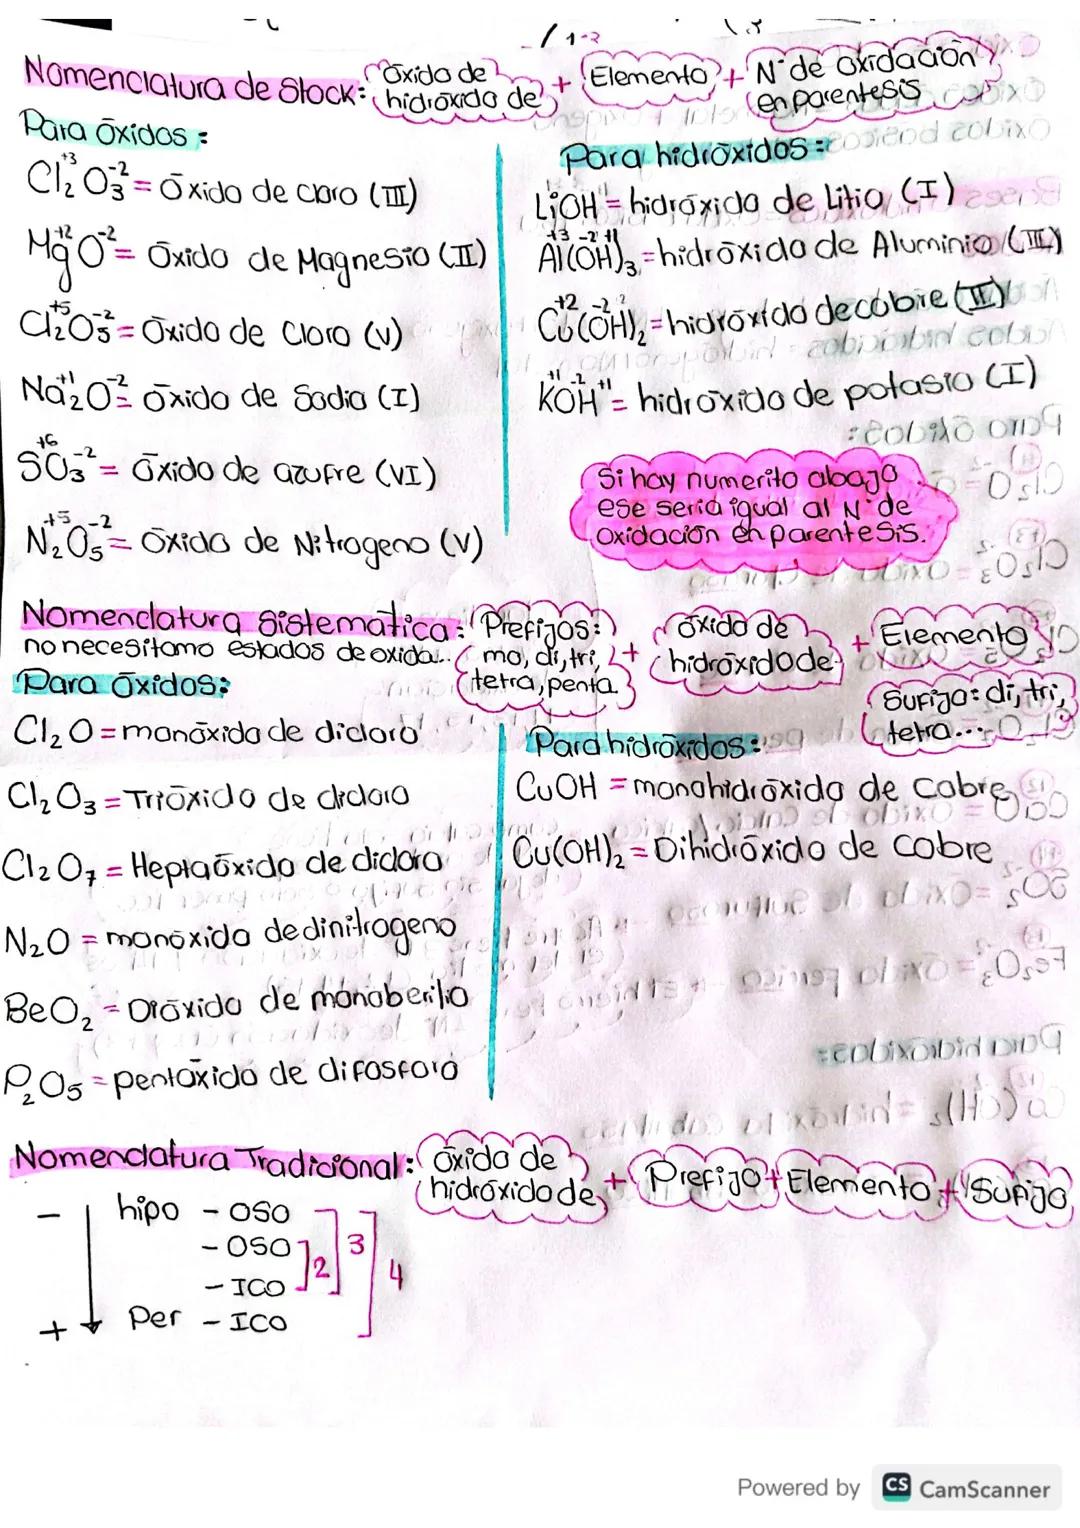 Nomenclatura de Stock: óxido de hidróxido de + Elemento + N° de oxidación en parentesis
Para Óxidos:
Cl₂⁺³O₃⁻² = Óxido de cloro (III)
Mg⁺²O⁻² = Óxido de Magnesio (II)
Cl₂⁺⁵O₅⁻² = Óxido de Cloro (V)
Na₂⁺¹O⁻² = óxido de Sodio (I)
S⁺⁶O₃⁻² = óxido de azufre (VI)
N₂⁺⁵O₅⁻² = óxido de Nitrogeno (V)
Para hidróxidos:
LiOH = hidróxido de Litio (I)
Al⁺³(O⁻²H⁺¹)₃ = hidróxido de Aluminio (III)
Cu⁺²(OH)₂ = hidróxido de cobre (II)
K⁺¹O⁻²H⁺¹ = hidróxido de potasio (I)
Si hay numerito abajo
ese seria igual al N° de
oxidación en parentesis.
Nomenclatura Sistematica: Prefijos: mo, di, tri, tetra, penta + óxido de hidroxido de + Elemento
no necesitamo estados de oxida...
Sufijo: di, tri,
tetra...
Para Óxidos:
Cl₂O = monóxido de dicloro
Cl₂O₃ = Trióxido de dicloro
Cl₂O₇ = Heptaóxido de dicloro
N₂O = monóxido de dinitrogeno
BeO₂ = Dióxido de monoberilio
P₂O₅ = pentóxido de difosforo
Para hidróxidos:
CuOH = monohidróxido de Cobre
Cu(OH)₂ = Dihidróxido de Cobre
Nomenclatura Tradicional: óxido de hidróxido de + Prefijo + Elemento + Sufijo
- hipo - OSO
- OSO
- ICO
+ Per - ICO
2 3 4
Powered by CS CamScanner